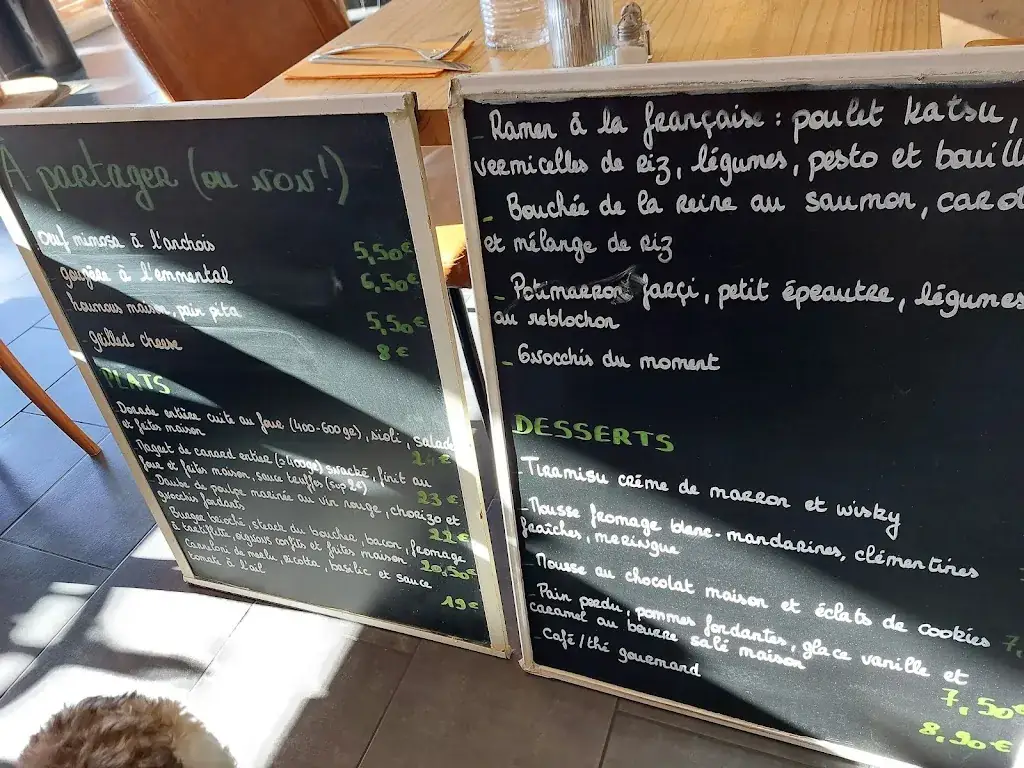 À partager (ou NON!)
oeuf mimosa à l'anchois 5,50€
gougère à l'emmental 6,50€
houmous maison, pain pita 5,50€
grilled cheese 8€
PLATS
Dorade entière cuite au four (400-600gr), aïoli, salade
et frites maison 24€
Magret de canard entier (≥400gr) snacké, finit au
four et frites maison, sauce truffes (sup 2€) 23€
Daube de poulpe marinée au vin rouge, chorizo et
gnocchis fondants 22€
Burger brioché, steack du boucher, bacon, fromage
à tartiflette, oignons confits et frites maison 20,50€
Canneloni de merlu, ricotta, basilic et sauce
tomate à l'ail 19€
- Ramen à la française : poulet katsu,
vermicelles de riz, légumes, pesto et bouill
- Bouchée de la reine au saumon, carot
et mélange de riz
- Potimarron farçi, petit épeautre, légumes
au reblochon
- Gnocchis du moment
DESSERTS
- Tiramisu crème de marron et wisky
- Mousse fromage blanc-mandarines, clémentines
fraîches, meringue
- Mousse au chocolat maison et éclats de cookies 7,
- Pain perdu, pommes fondantes, glace vanille et
caramel au beurre salé maison 7,50€
- Café/thé gourmand 8,90€